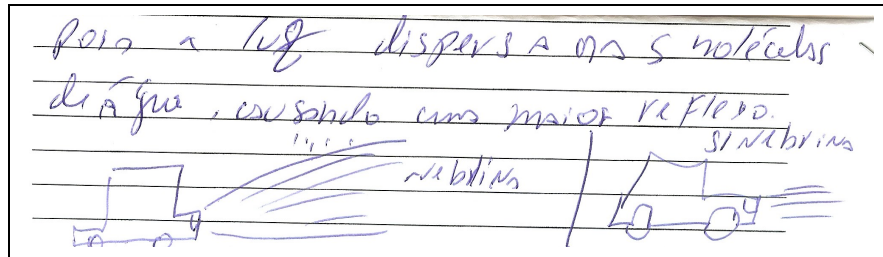 pois a luz dispersa nas moléculas
de água, causando uma maior reflexo.
S/NEBRINA
NEBLINA